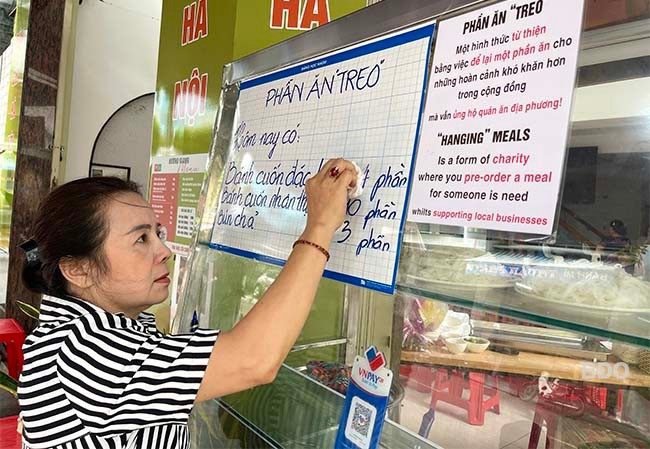 HÀ
NỘI
PHẦN ĂN "TREO"
Hôm nay có:
Bánh cuốn đặc phần
Bánh cuốn nhân phần
bún chả 3 phần
PHẦN ĂN "TREO
Một hình thức từ thiện
bằng việc để lại một phần ăn cho
những hoàn cảnh khó khăn hơn
trong cộng đồng
mà vẫn ủng hộ quán ăn địa phương!
"HANGING" MEALS
Is a form of charity
where you pre-order a meal
for someone is need
whilts supporting local businesses
VNPAY
BDO